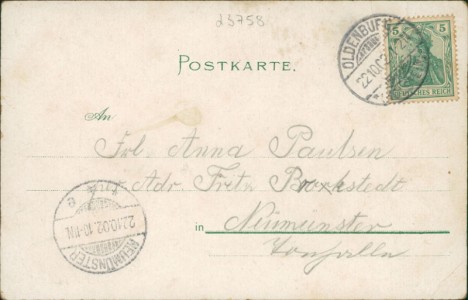 23758
POSTKARTE.
OLDENBURG
22.10.02
5 5
DEUTSCHES REICH
An
Frl. Anna Paulsen
Adr. Fritz
in Neumünster
22.10.02.10-11N.
NEUMÜNSTER